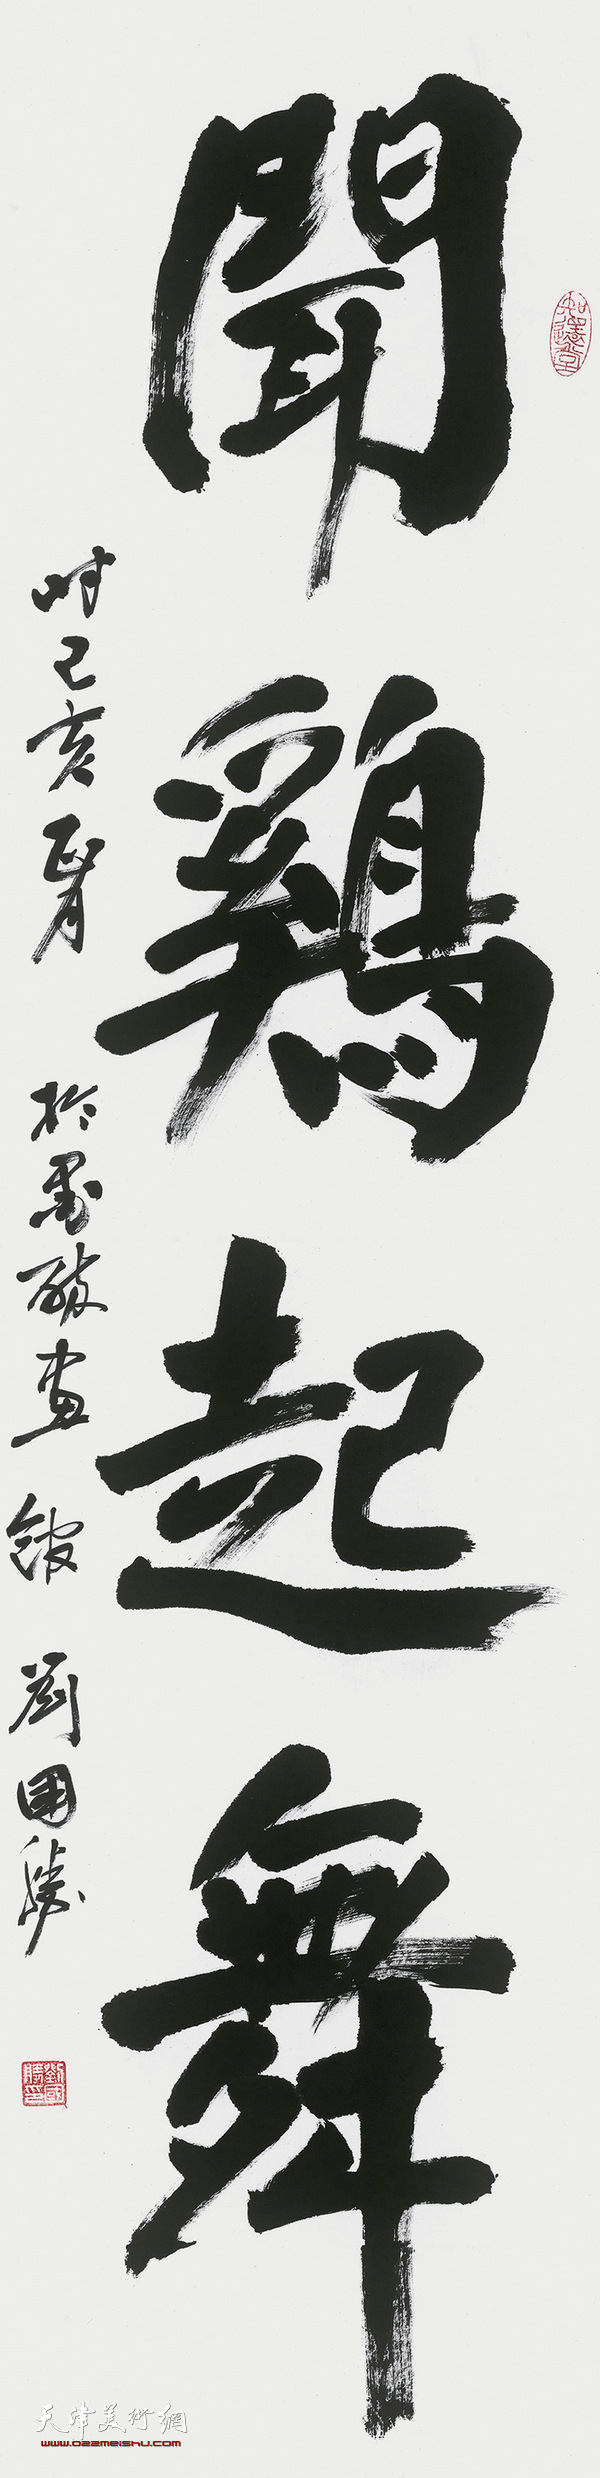 聞鷄起舞
時己亥夏月於墨緣畫館劉國勝
知遠堂
劉國勝印
天津美術網
www.022meishu.com